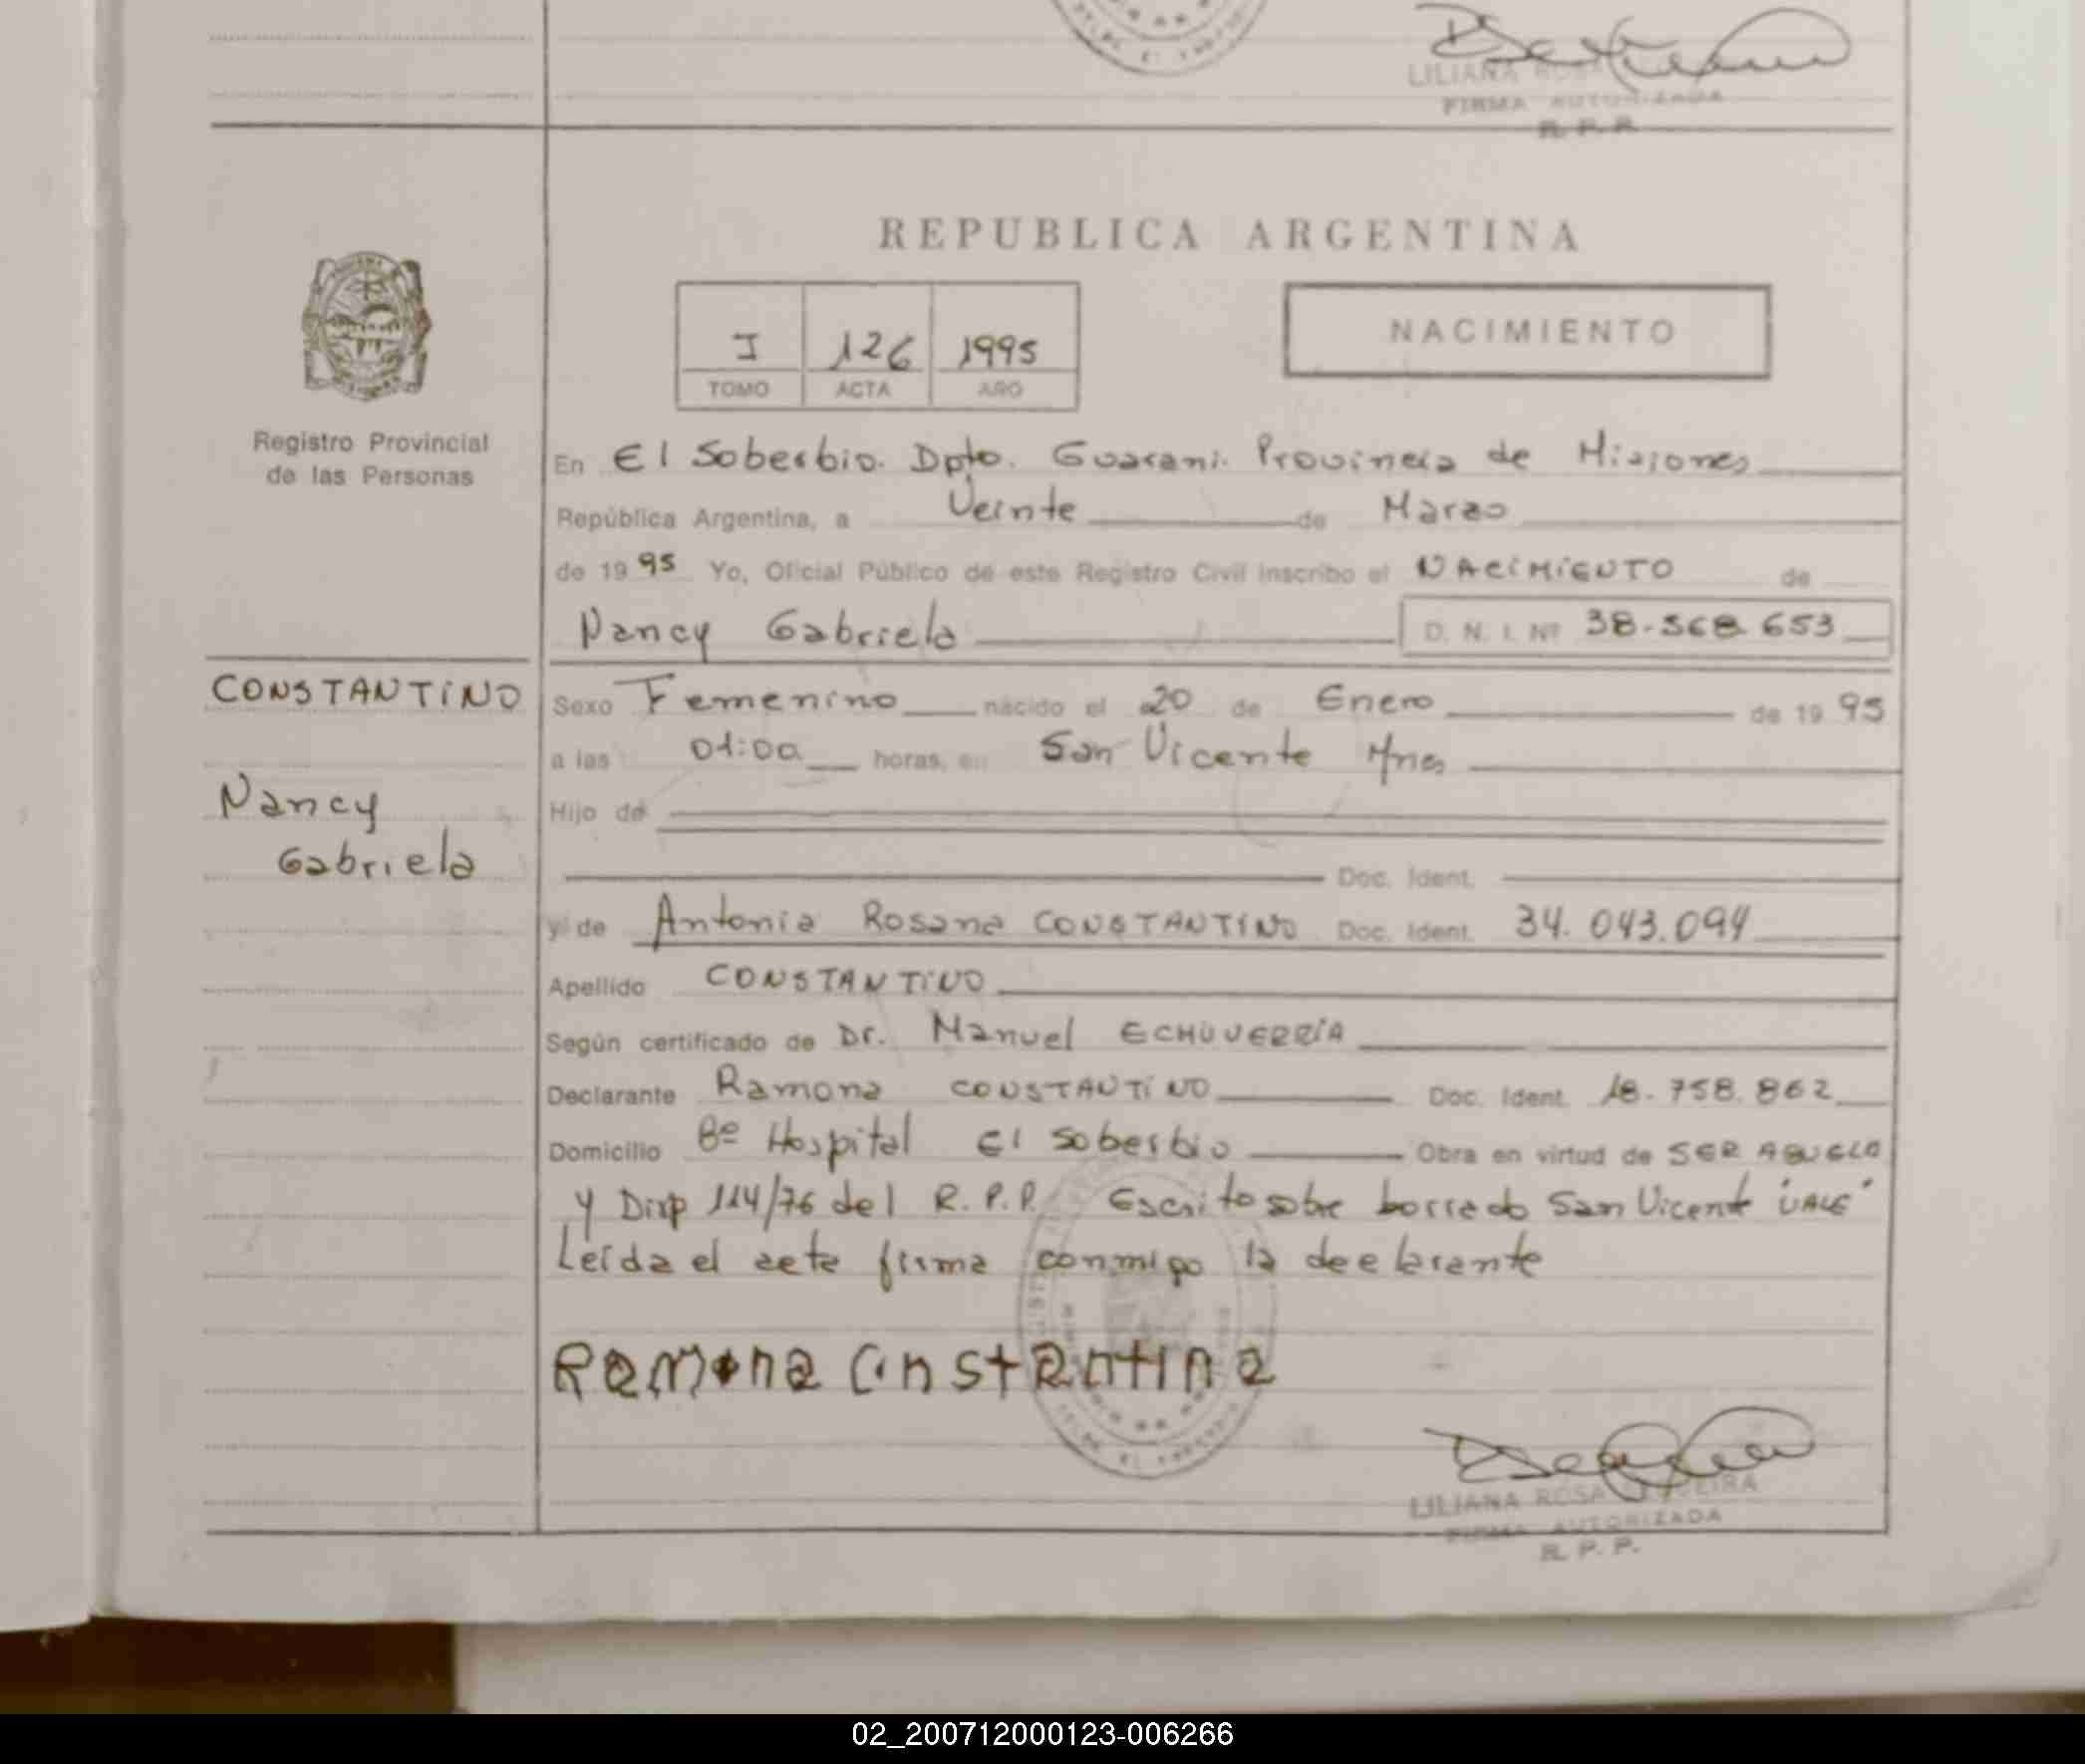 LILIANA ROSA
FIRMA AUTORIZADA
R. P. P.
REPUBLICA ARGENTINA
I 126 1995
TOMO ACTA AÑO
NACIMIENTO
Registro Provincial
de las Personas
En El Soberbio. Dpto. Guarani. Provincia de Misiones
República Argentina, a Veinte de Marzo
de 1995 Yo, Oficial Público de este Registro Civil inscribo el NACIMIENTO de
Nancy Gabriela D. N. I. Nº 38.568.653
CONSTANTINO
Nancy
Gabriela
Sexo Femenino nacido el 20 de Enero de 1995
a las 01:00 horas, en San Vicente Mnes
Hijo de
Doc. Ident.
y de Antonia Rosana CONSTANTINO Doc. Ident. 34.043.094
Apellido CONSTANTINO
Según certificado de Dr. Manuel ECHUVERRÍA
Declarante Ramona CONSTANTINO Doc. Ident. 18.758.862
Domicilio Bº Hospital El Soberbio Obra en virtud de SER ABUELA
y Disp 114/76 del R.P.P. Escrito sobre borrado San Vicente "VALE"
Leída el acta firma conmigo la declarante
Ramona Constantina
LILIANA ROSA
FIRMA AUTORIZADA
R. P. P.
02_200712000123-006266